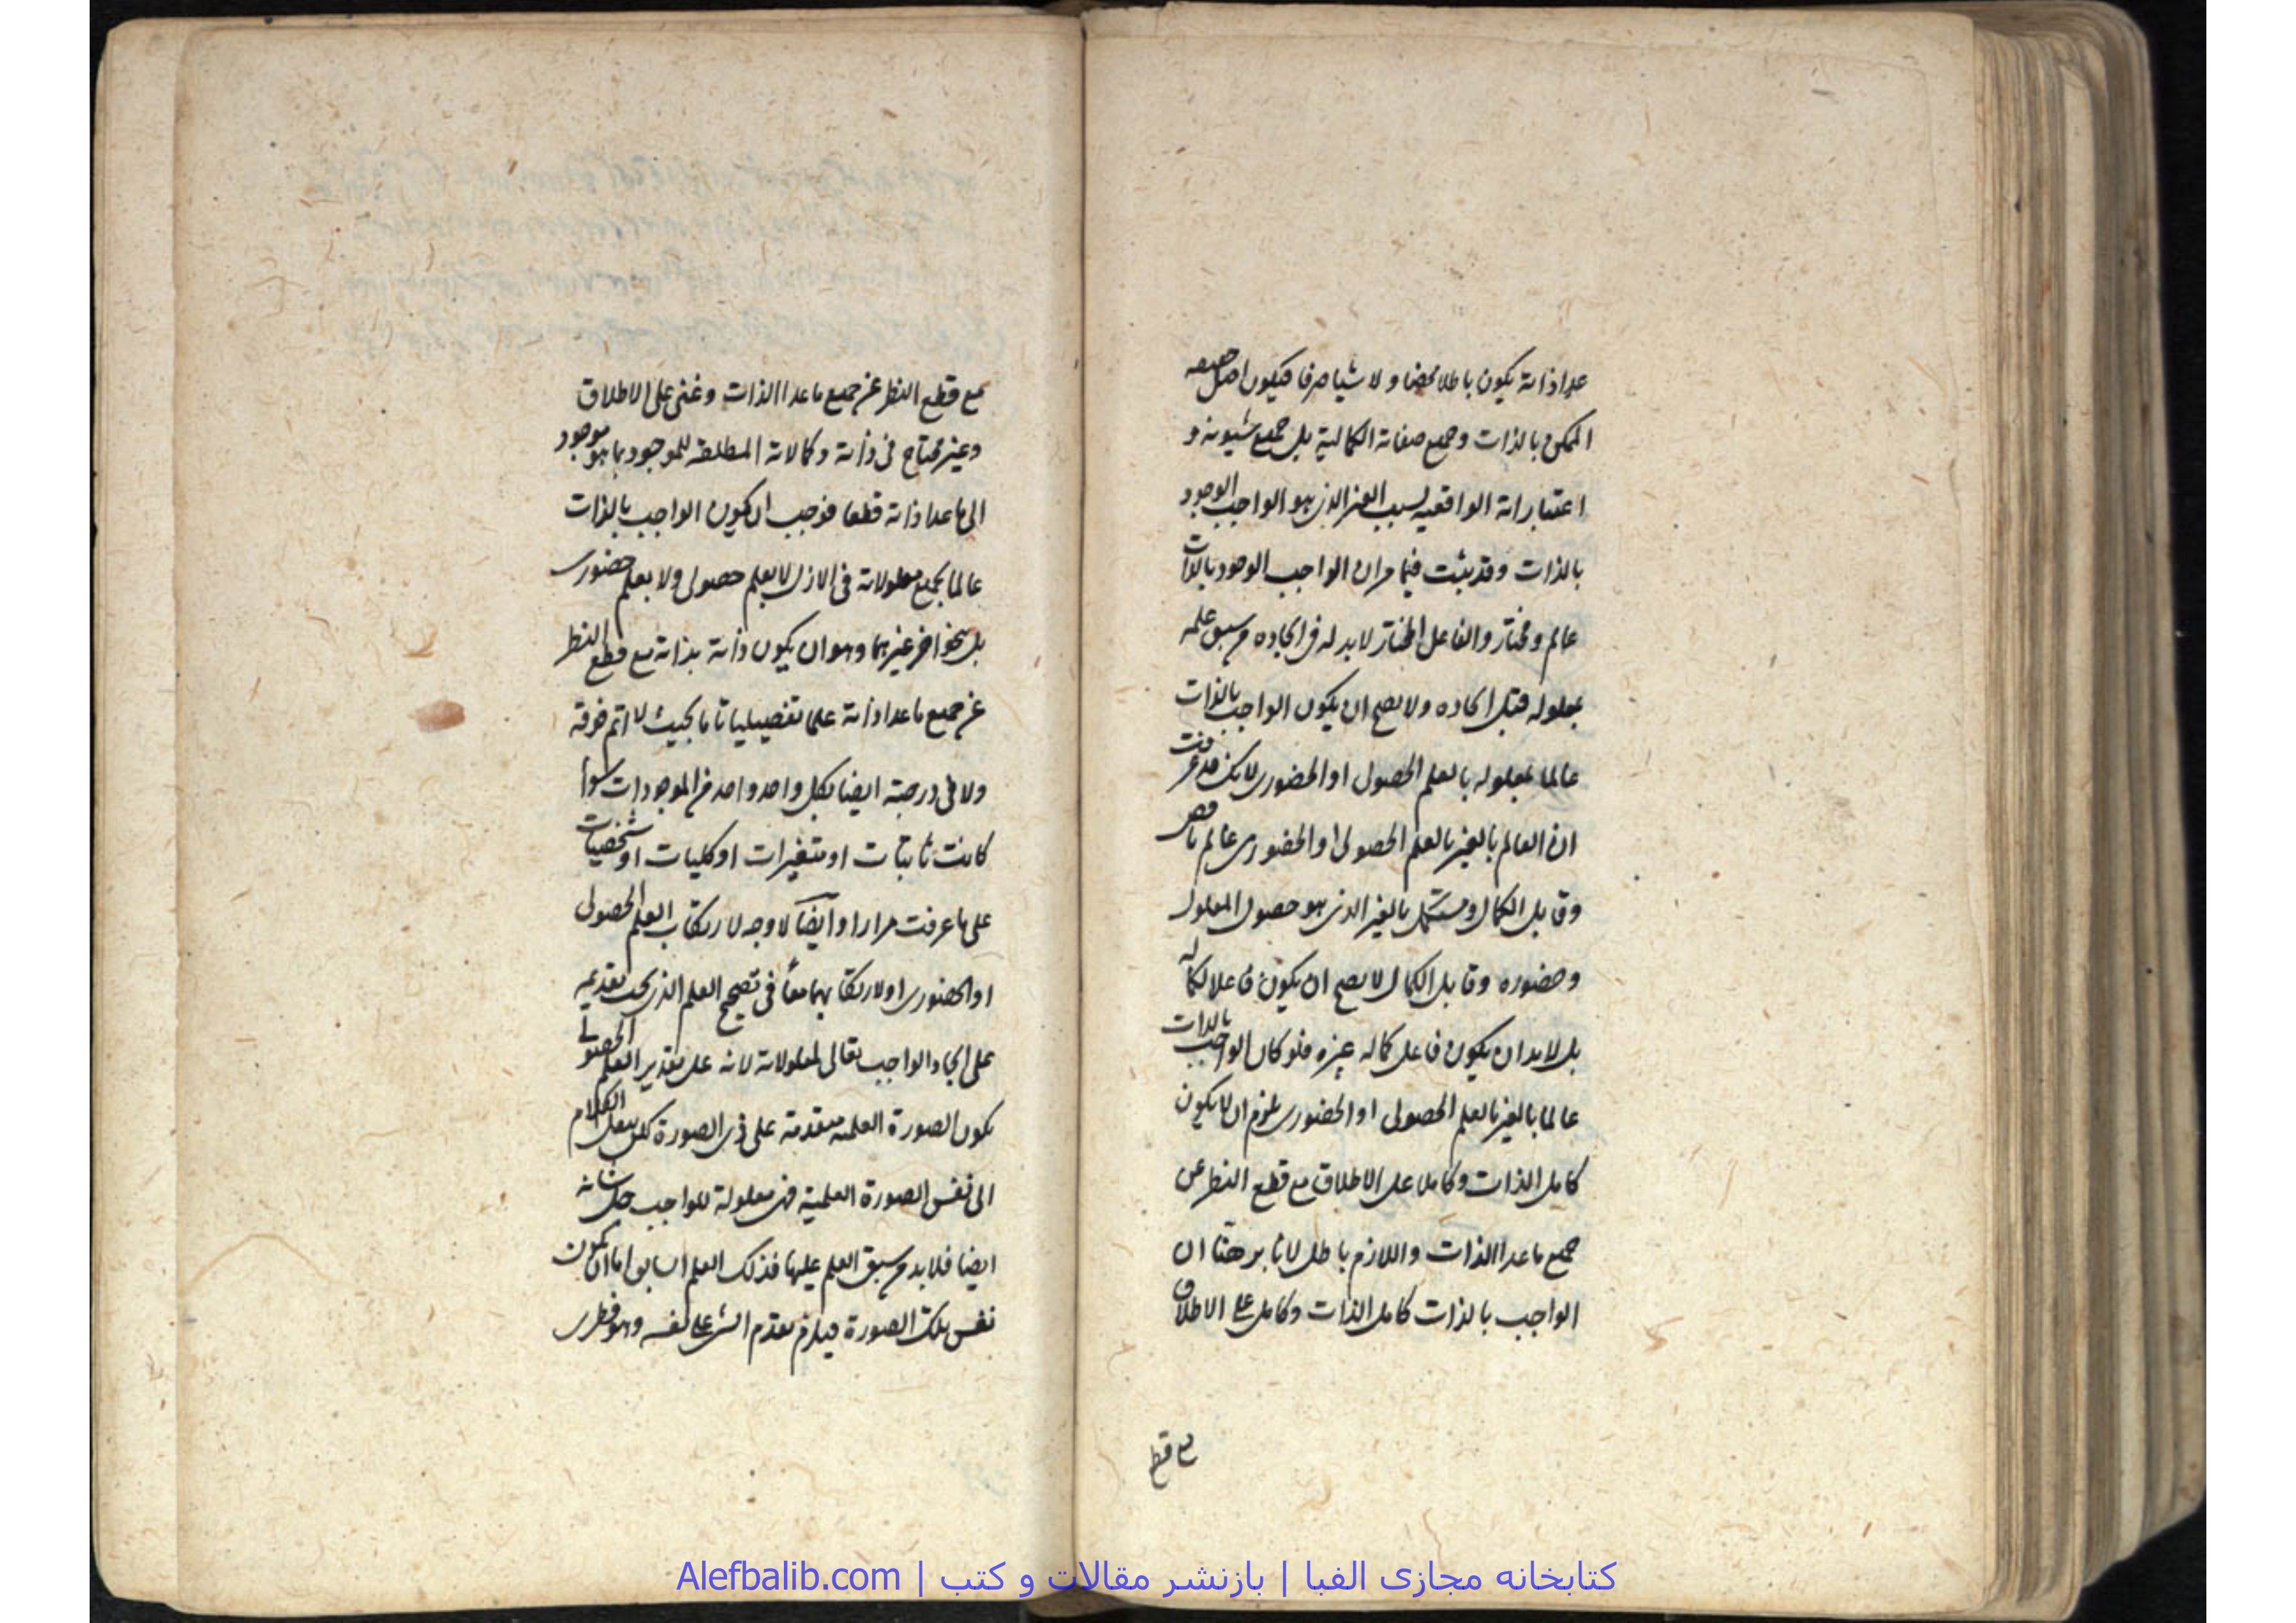 عدا ذاته يكون باطلا محضا ولا شيئا صرفا فيكون اصل حقيقة
الممكن بالذات وجميع صفاته الكمالية بل جميع شيونه و
اعتباراته الواقعية بسبب الغير الذى هو الواجب الوجود
بالذات وقد يثبت فيما مر ان الواجب الوجود بالذات
عالم ومختار والفاعل المختار لابد له فى ايجاده من سبق علمه
بمعلوله قبل ايجاده ولا يصح ان يكون الواجب بالذات
عالما بمعلوله بالعلم الحصولى او الحضورى لانك قد عرفت
ان العالم بالغير بالعلم الحصولى او الحضورى عالم ناقص
وقابل الكمال ومستكمل بالغير الذى هو حصول المعلول
وحضوره وقابل الكمال لا يصح ان يكون فاعلا لكماله
بل لابد ان يكون فاعل كماله غيره فلو كان الواجب بالذات
عالما بالغير بالعلم الحصولى او الحضورى يلزم ان لا يكون
كامل الذات وكاملا على الاطلاق مع قطع النظر عن
جميع ما عدا الذات واللازم باطل لانا برهنا ان
الواجب بالذات كامل الذات وكامل على الاطلاق
مع قطع
مع قطع النظر عن جميع ما عدا الذات وغنى على الاطلاق
وغير محتاج فى ذاته وكمالاته المطلقة للموجود بما هو موجود
الى ما عدا ذاته قطعا فوجب ان يكون الواجب بالذات
عالما بجميع معلولاته فى الازل لا بعلم حصولى ولا بعلم حضورى
بل بنحو اخر غيرهما وهو ان يكون ذاته بذاته مع قطع النظر
عن جميع ما عدا ذاته علما تفصيليا تاما بحيث لا اتم فوقه
ولا فى درجته ايضا بكل واحد واحد من الموجودات سواء
كانت ثابتات او متغيرات او كليات او شخصيات
على ما عرفت مرارا وايضا لا وجه لارتكاب العلم الحصولى
او الحضورى او لارتكابهما معا فى تصحيح العلم الذى يجب تقديمه
على ايجاد الواجب تعالى لمعلولاته لانه على تقدير العلم الحصولى
يكون الصورة العلمية متقدمة على ذى الصورة لكن ينقل الكلام
الى نفس الصورة العلمية فهى معلولة للواجب جل شانه
ايضا فلابد من سبق العلم عليها فذلك العلم السابق اما ان يكون
نفس تلك الصورة فيلزم تقدم الشئ على نفسه وهو فطرى
كتابخانه مجازی الفبا | بازنشر مقالات و کتب | Alefbalib.com